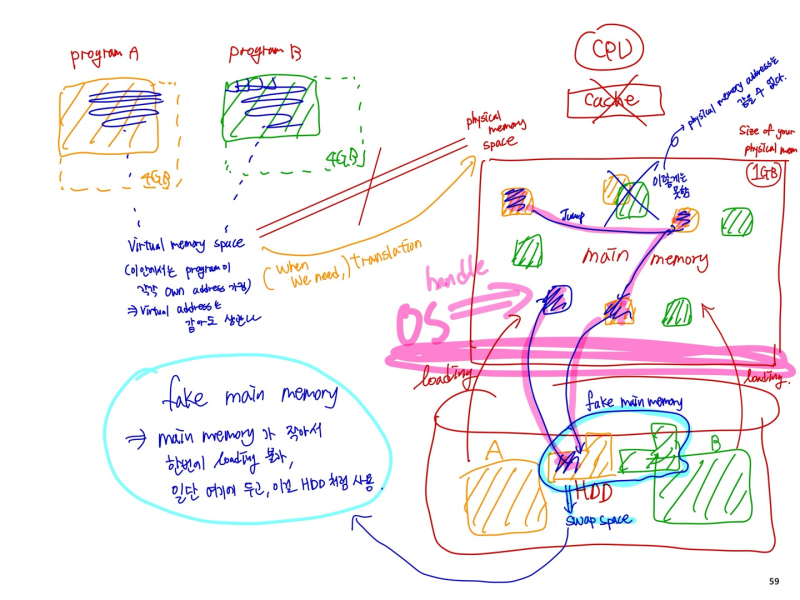 program A
program B
4GB
4GB
CPU
Cache
physical memory address는
같을 수 없다.
physical
memory
space
Size of your
physical mem
1GB
이렇게는
못함
Jump
main memory
Virtual memory space
(이 안에서는 program이
각각 own address 가짐)
⇒ Virtual address는
같아도 상관x
(when
we need,) translation
handle
OS
loading
loading.
fake main memory
⇒ main memory가 작아서
한번에 loading 불가,
일단 여기에 두고,
HDD처럼 사용.
fake main memory
A
B
HDD
swap space
59